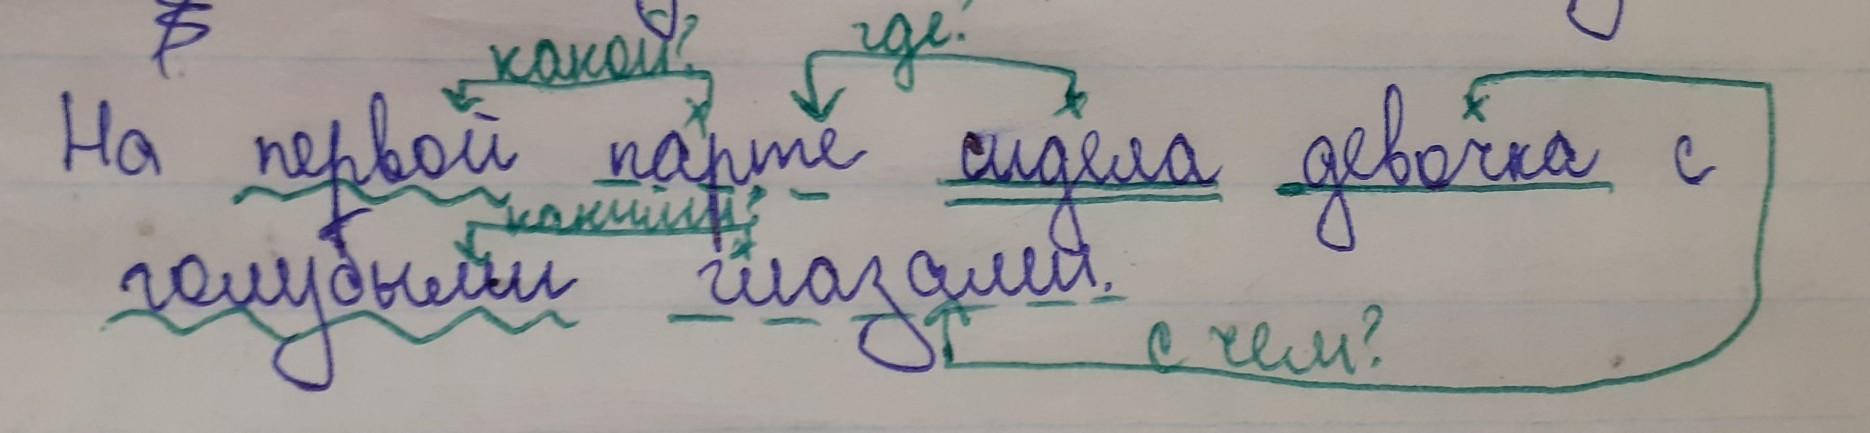 какой? где?
На первой парте сидела девочка с
какими?
голубыми глазами.
с чем?